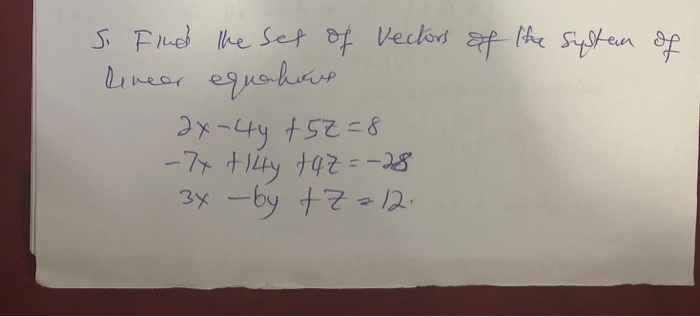 5. Find the Set of Vectors of the System of
Linear equations
2x - 4y + 5z = 8
-7x + 14y + 9z = -28
3x - 6y + z = 12.